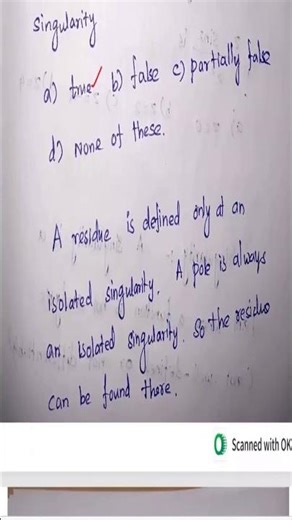 Singularity
a) true✓ b) false c) partially false
d) None of these.
A residue is defined only at an
isolated singularity. A pole is always
an isolated singularity. So the residue
can be found there.
Scanned with OK